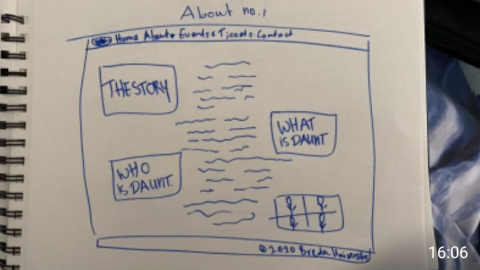 About no.1
Home About Events & Tickets Contact
THE STORY
WHAT
IS DAUNT
WHO
IS DAUNT.
© 2020 Breda University
16:06